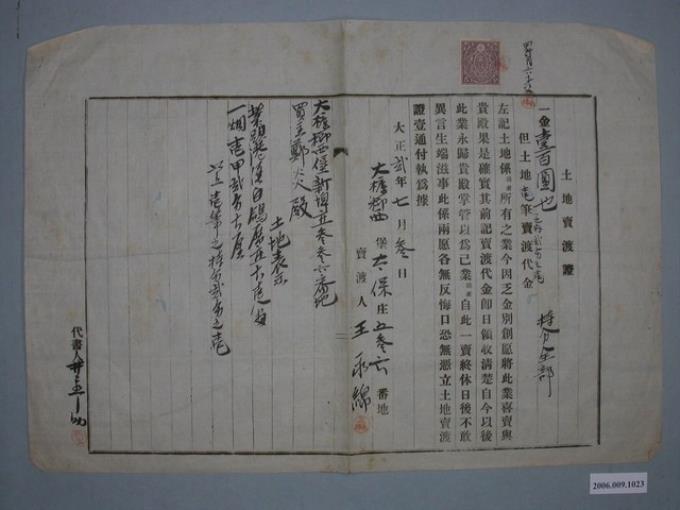 土地賣渡證
一金壹百圓也
但土地壹筆賣渡代金 持分全部
左記土地係所有之業今因乏金別創愿將此業喜賣與
貴殿果是確實其前記賣渡代金卽日領收淸楚自今以後
此業永歸貴殿掌管以爲己業自此一賣終休日後不敢
異言生端滋事此係兩愿各無反悔口恐無憑立土地賣渡
證壹通付執爲據
大正貳年七月參日
大糠榔西堡太保庄五參六番地
賣渡人 王永綿
大糠榔西堡新埤庄參參六番地
買主鄭火殿
土地表示
一畑壹甲貳分
以上壹筆之持分貳分之壹
代書人
2006.009.1023